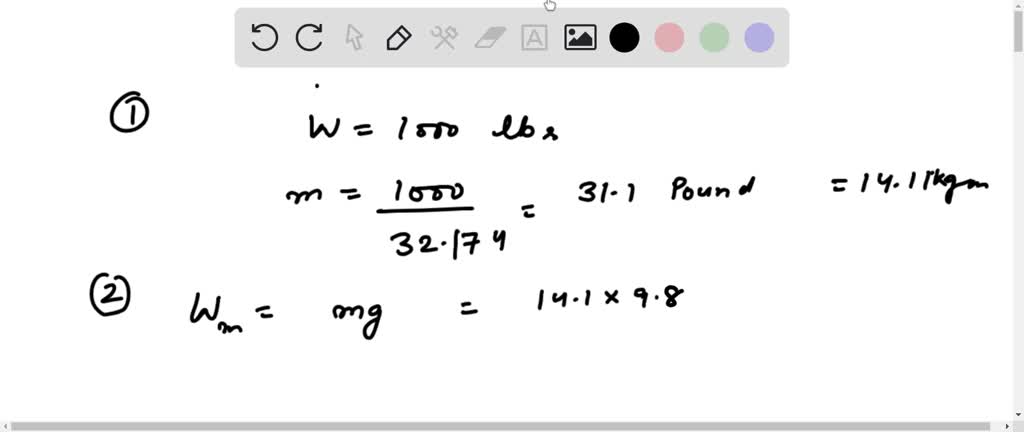 ① W = 1000 lbs
m = 1000 / 32.174 = 31.1 Pound = 14.11 kgm
② Wm = mg = 14.1 × 9.8